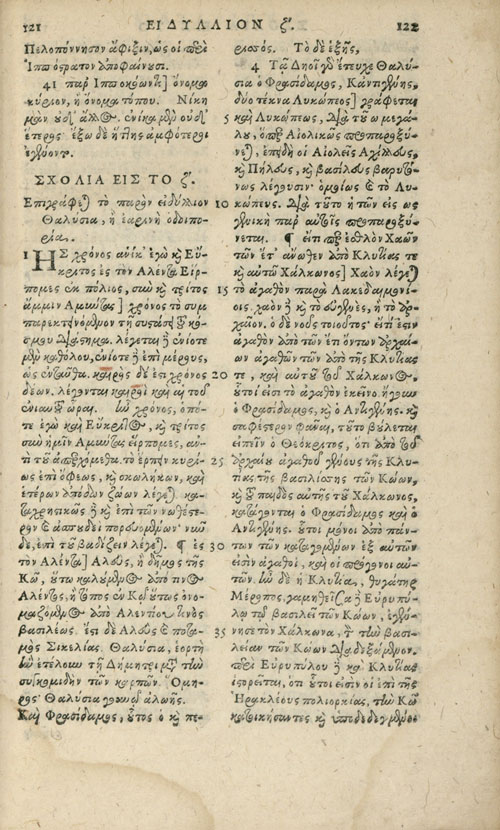 121 ΕΙΔΥΛΛΙΟΝ ζ. 122
Πελοπόννησον ἄφιξιν, ὡς οἱ περὶ
Ἱππόστρατον ἀποφαίνουσι.
41 παρ Ἱπποκόωντι] ὄνομα
κύριον, ἢ ὄνομα τόπου. Νίκη
μὰν οὐδ' ἄλλος. ἐνίκα μὲν οὐδ'
ἕτερος· ἔξω δὲ ἤτης ἀμφότεροι
ἐγένοντο.
ΣΧΟΛΙΑ ΕΙΣ ΤΟ ζ.
Ἐπιγράφεται τὸ παρὸν εἰδύλλιον
Θαλύσια, ἢ ἐαρινὴ ὁδοιπο-
ρία.
1 ΗΣ χρόνος ἁνίκ' ἐγὼ καὶ Εὔ-
κριτος ἐς τὸν Ἄλεντα Εἵρ-
πομες ἐκ πόλιος, σὺν καὶ τρίτος
ἄμμιν Ἀμύντας] χρόνος τὸ συμ
παρεκτεινόμενον τῇ συστάσει τοῦ κό-
σμου διάστημα. λέγεται δ' ἐνίοτε
μὲν καθόλου, ἐνίοτε δ' ἐπὶ μέρους,
ὡς ἐνταῦθα. καιρὸς δέ ἐστι χρόνος
δέων. λέγονται καιροὶ καὶ αἱ τοῦ
ἐνιαυτοῦ ὧραι. ἦν χρόνος, ὁπό-
τε ἐγὼ καὶ Εὔκριτος, καὶ τρίτος
σὺν ἡμῖν Ἀμύντας εἵρπομες, ἀν-
τὶ τοῦ ἐπορευόμεθα. τὸ ἕρπειν κυρί-
ως ἐπὶ ὄφεως, καὶ σκωλήκων, καὶ
ἑτέρων ἀπόδων ζώων λέγεται. κα-
ταχρηστικῶς δὲ καὶ ἐπὶ τῶν νωθέστε-
ρον καὶ ἀσπουδεὶ πορευομένων· νῦν
δὲ, ἐπὶ τοῦ βαδίζειν λέγεται. ¶ ἐς
τὸν Ἄλεντα] Ἀλοῦς, ἢ δῆμος τῆς
Κῶ, οὕτω καλούμενος ἀπό τινος
Ἄλεντος, ἢ τόπος ἐν Κῷ οὕτως ὀνο-
μαζόμενος ἀπὸ Ἀλεντίου τινὸς
βασιλέως. ἔστι δὲ Ἀλοῦς καὶ ποτα-
μὸς Σικελίας. Θαλύσια, ἑορτὴ
ἣν ἐπέλουν τῇ Δήμητρι μετὰ τὴν
συγκομιδὴν τῶν καρπῶν. Ὅμη-
ρος· Θαλύσια γουνῷ ἀλωῆς.
Καὶ Φρασίδαμος, οὗτος ὁ καὶ πε-
ριστός. Τὸ δὲ ἑξῆς,
4 Τᾷ Δηοῖ γὰρ ἔτευχε Θαλύ-
σια ὁ Φρασίδαμος, κἀντιγένης,
δύο τέκνα Λυκωπέος] γράφεται
5 καὶ Λυκωπέως, διὰ τοῦ ω μεγά-
λου, ὅπερ Αἰολικῶς προπαροξύ-
νεται, ἐπειδὴ οἱ Αἰολεῖς Ἀχίλλευς,
καὶ Πήλευς, καὶ βασίλευς βαρυτό-
νως λέγουσιν· ὁμοίως καὶ τὸ Λυ-
10 κώπευς. διὰ τοῦτο ἡ τῶν εἰς ως
γενικὴ παρ' αὐτοῖς προπαροξύ-
νεται. ¶ εἴτι περ ἐσθλὸν Χαῶν
τῶν ἔτ' ἄνωθεν ἀπὸ Κλυτίας τε
καὶ αὐτῶ Χάλκωνος] Χαὸν λέγεται
15 τὸ ἀγαθὸν παρὰ Λακεδαιμονί-
οις. χαὸν δὲ καὶ τὸ εὐγενὲς, ἢ τὸ ἀρ-
χαῖον. ὁ δὲ νοῦς τοιοῦτος· εἴτι ἐστὶν
ἀγαθὸν ἀπὸ τῶν ἔτι ὄντων ἀρχαί-
ων ἀγαθῶν τῶν ἀπὸ τῆς Κλυτίας
20 τε, καὶ αὐτοῦ τοῦ Χάλκωνος,
οὗτοί εἰσι τὸ ἀγαθὸν ἐκεῖνο. ἤγουν
ὁ Φρασίδαμος, καὶ ὁ Ἀντιγένης. καὶ
σαφέστερον φᾶναι, τοῦτο βούλεται
εἰπεῖν ὁ Θεόκριτος, ὅτι ἀπὸ τοῦ
25 ἀρχαίου ἀγαθοῦ γένους τῆς Κλυ-
τίας τῆς βασιλίσσης τῶν Κώων,
καὶ τοῦ παιδὸς αὐτῆς τοῦ Χάλκωνος,
κατάγονται ὁ Φρασίδαμος καὶ ὁ
Ἀντιγένης. οὗτοι μόνοι ἀπὸ πάν-
30 των τῶν καταγομένων ἐξ αὐτῶν
εἰσὶν ἀγαθοὶ, καὶ οἱ πρόγονοι αὐ-
τῶν. ἦν δὲ ἡ Κλυτία, θυγάτηρ
Μέροπος, γαμηθεῖσα δ' Εὐρυπύ-
λῳ τῷ βασιλεῖ τῶν Κώων, ἐγέν-
35 νησε τὸν Χάλκωνα, τὸν τὴν βασι-
λείαν τῶν Κώων διαδεξόμενον.
περὶ Εὐρυπύλου δὲ καὶ Κλυτίας
ἱστορεῖται, ὅτι οὗτοί εἰσιν οἱ ἐπὶ τῆς
Ἡρακλέους πολιορκίας, τὴν Κῶ
κατοικήσαντες καὶ ὑποδεδεγμένοι